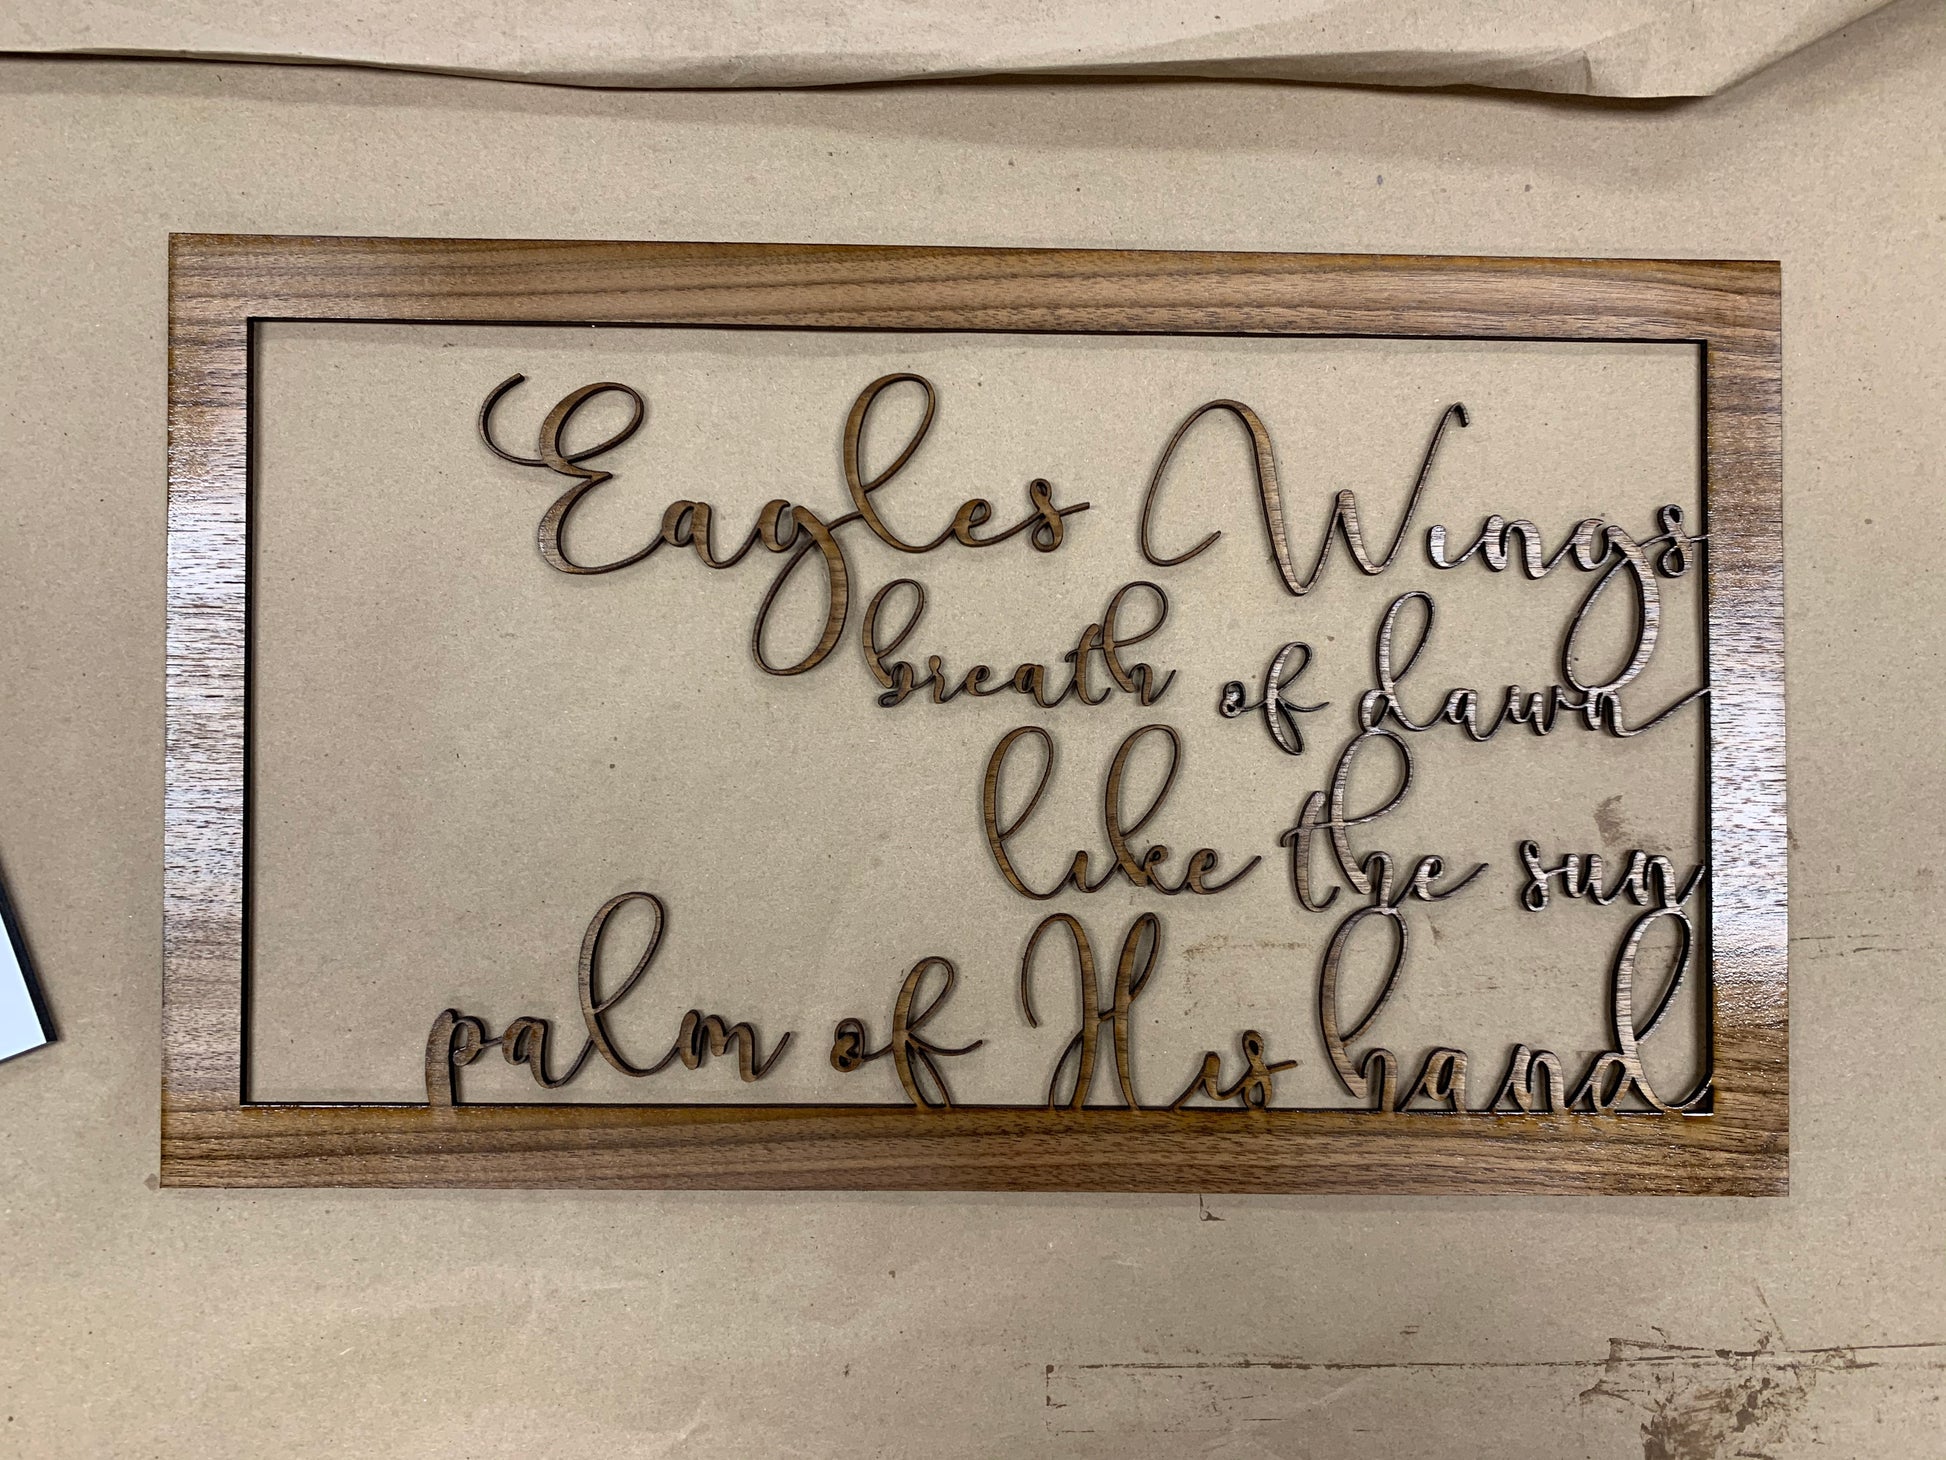 Eagles Wings
breath of dawn
like the sun
palm of His hand